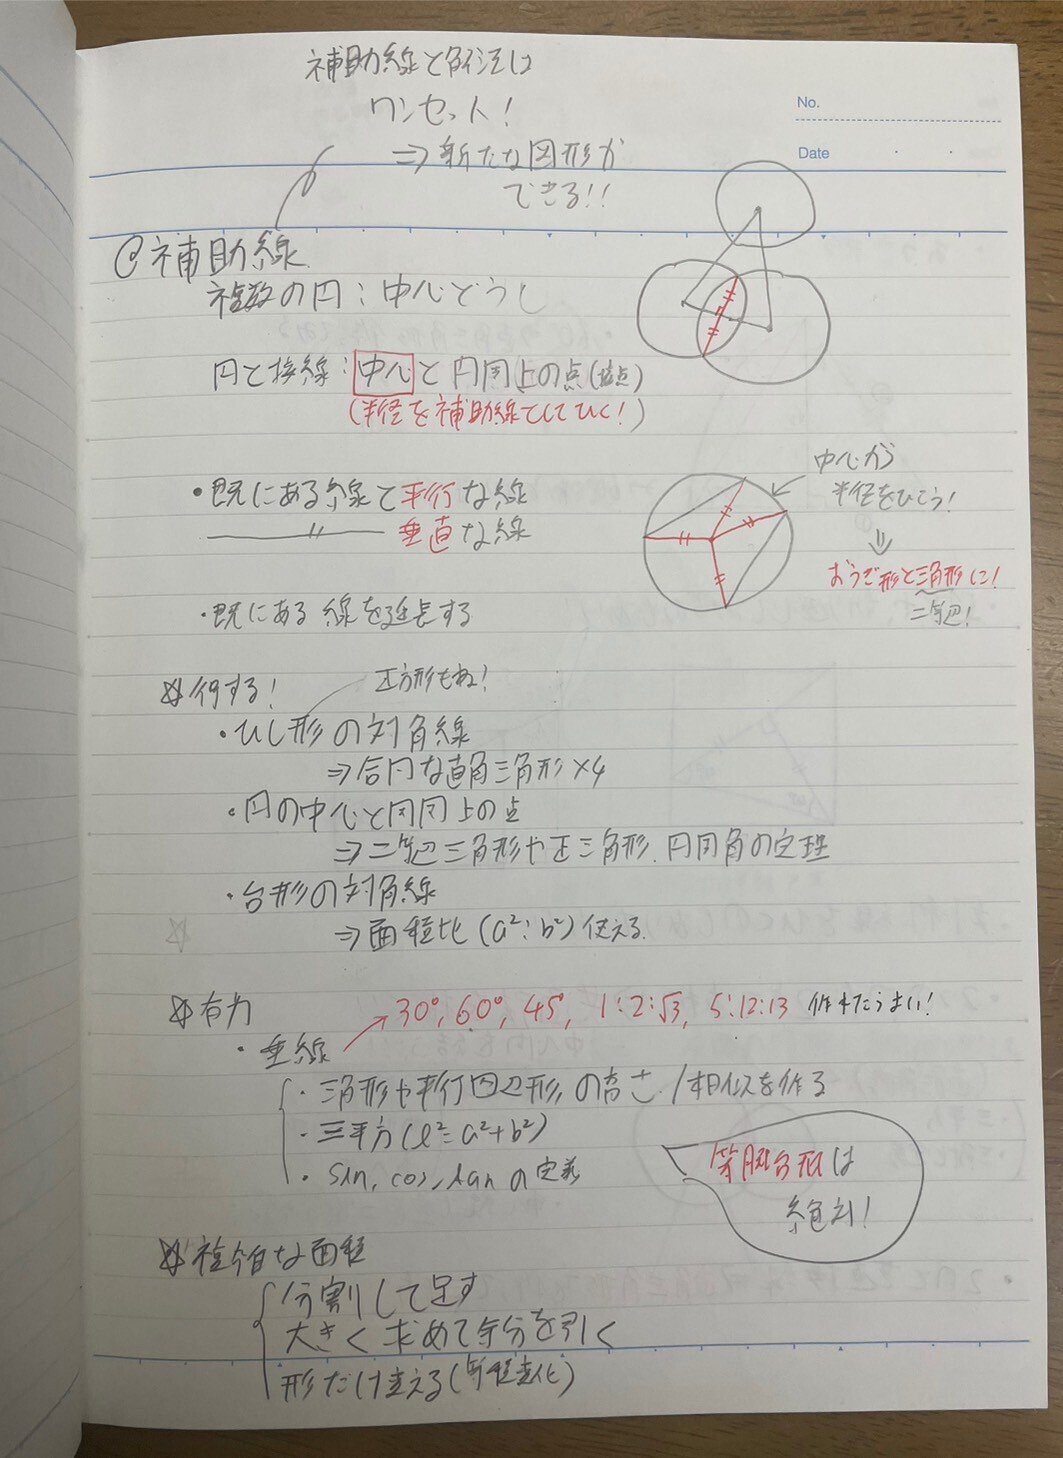 補助線と解法は
ワンセット!
⇒新たな図形が
できる!!
No.
Date
@補助線
複数の円:中心どうし
円と接線:中心と円周上の点(接点)
(半径を補助線としてひく!)
・既にある線と平行な線
〃 垂直な線
中心から
半径をひこう!
⇓
おうぎ形と三角形に!
二等辺!
・既にある線を延長する
☆ する!
正方形もね!
・ひし形の対角線
⇒合同な直角三角形×4
・円の中心と円周上の点
⇒二等辺三角形や正三角形、円周角の定理
・台形の対角線
⇒面積比(a²:b²)使える
☆有力
30°, 60°, 45°, 1:2:√3, 5:12:13 作れたらうまい!
・垂線
・三角形や平行四辺形の高さ/相似を作る
・三平方(l²=a²+b²)
・sin, cos, tanの定義
等脚台形は
絶対!
☆複雑な面積
分割して足す
大きく求めて余分を引く
形だけ変える(等積変化)